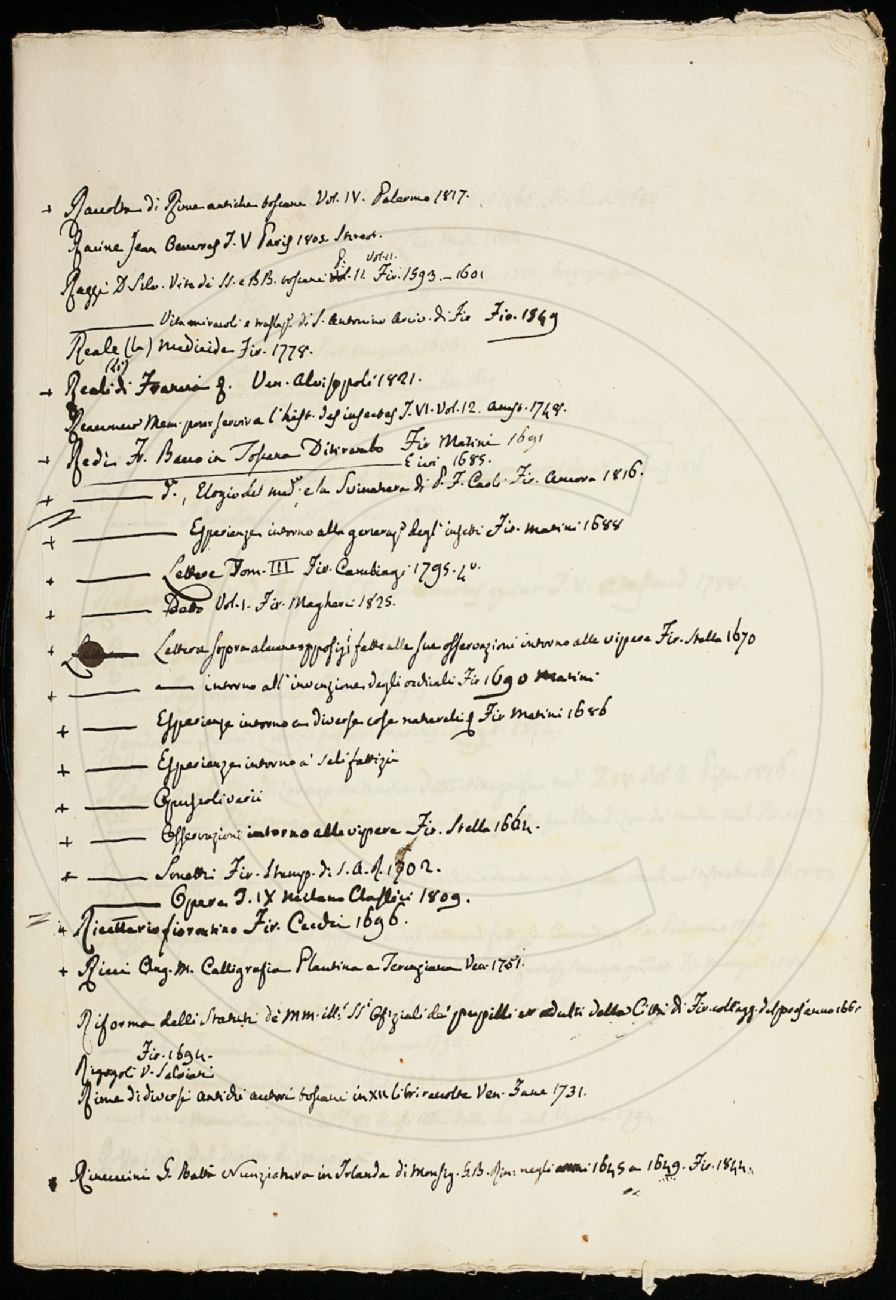 + Raccolta di Rime antiche toscane Vol. IV. Palermo 1817.
Racine Jean Oeuvres T. V Paris 1802.
Razzi D. Silv. Vite di SS. e BB. toscani P. Vol. II Fir. 1593 - 1601
——— Vita miracoli e traslaz. di S. Antonino Arciv. di Fir Fir. 1849
Reale (la) Medicide Fir. 1778.
+ Reali (li) di Francia 8. Ven. Alvisopoli 1821.
Reaumur Mem. pour servir a l'hist. des insectes T. VI. Vol. 12. Amst. 1748.
+ Redi Fr. Bacco in Toscana Ditirambo Fir Matini 1691
E ivi 1685.
+ ——— d., Elogio del med. e la Svinatura di P. F. Carli Fir. Ancora 1816.
+ ——— Esperienze intorno alla generaz. degl'insetti Fir. Matini 1688
+ ——— Lettere Tom. III Fir. Cambiagi 1795. 4°.
+ ——— Dette Vol. 1. Fir. Magheri 1825.
+ ——— Lettera sopra alcune opposizi fatte alle sue osservazioni intorno alle vipere Fir. Stella 1670
+ ——— —— intorno all'invenzione degli occhiali Fir 1690 Matini
+ ——— Esperienze intorno a diverse cose naturali Fir Matini 1686
+ ——— Esperienze intorno a' sali fattizi
+ ——— Opuscoli varii
+ ——— Osservazioni intorno alle vipere Fir. Stella 1664.
+ ——— Sonetti Fir. Stamp. di S. A. R. 1702.
——— Opere T. IX Milano Classici 1809.
+ Ricettario fiorentino Fir. Cecchi 1696.
+ Ricci Ang. M. Calligrafia Plautina e Terenziana Ven. 1751.
Riforma delli Statuti de' MM. ill.i SS.i Ofiziali de' pupilli et adulti della Città di Fir. coll'agg. del pres. anno
Fir. 1694.
Rigogoli V. Salviati
Rime di diversi antichi autori toscani in XII libri raccolte Ven. Zane 1731.
Rinuccini G. Batta Nunziatura in Irlanda di Monsig. G. B. Rin. negli anni 1645 a 1649. Fir. 1844.